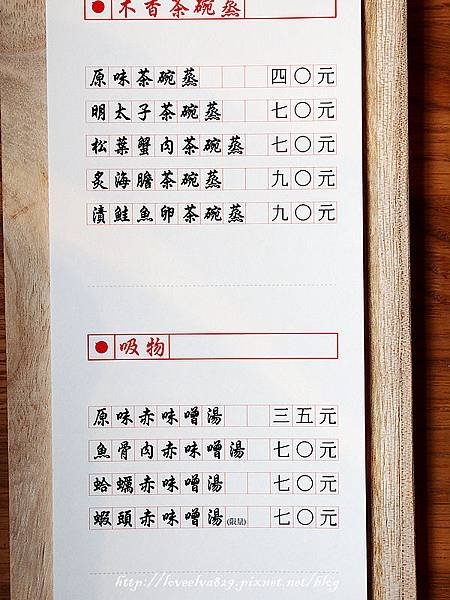 木香茶碗蒸
原味茶碗蒸 四〇元
明太子茶碗蒸 七〇元
松葉蟹肉茶碗蒸 七〇元
炙海膽茶碗蒸 九〇元
漬鮭魚卵茶碗蒸 九〇元
吸物
原味赤味噌湯 三五元
魚骨肉赤味噌湯 七〇元
蛤蠣赤味噌湯 七〇元
蝦頭赤味噌湯(限量) 七〇元
http://loveelva819.pixnet.net/blog